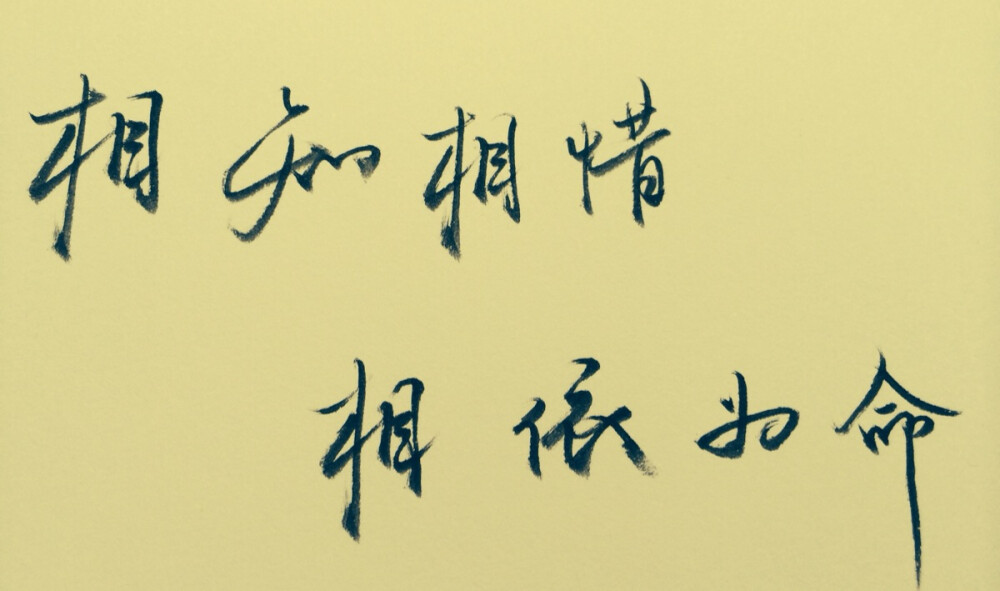 相知相惜
相依为命